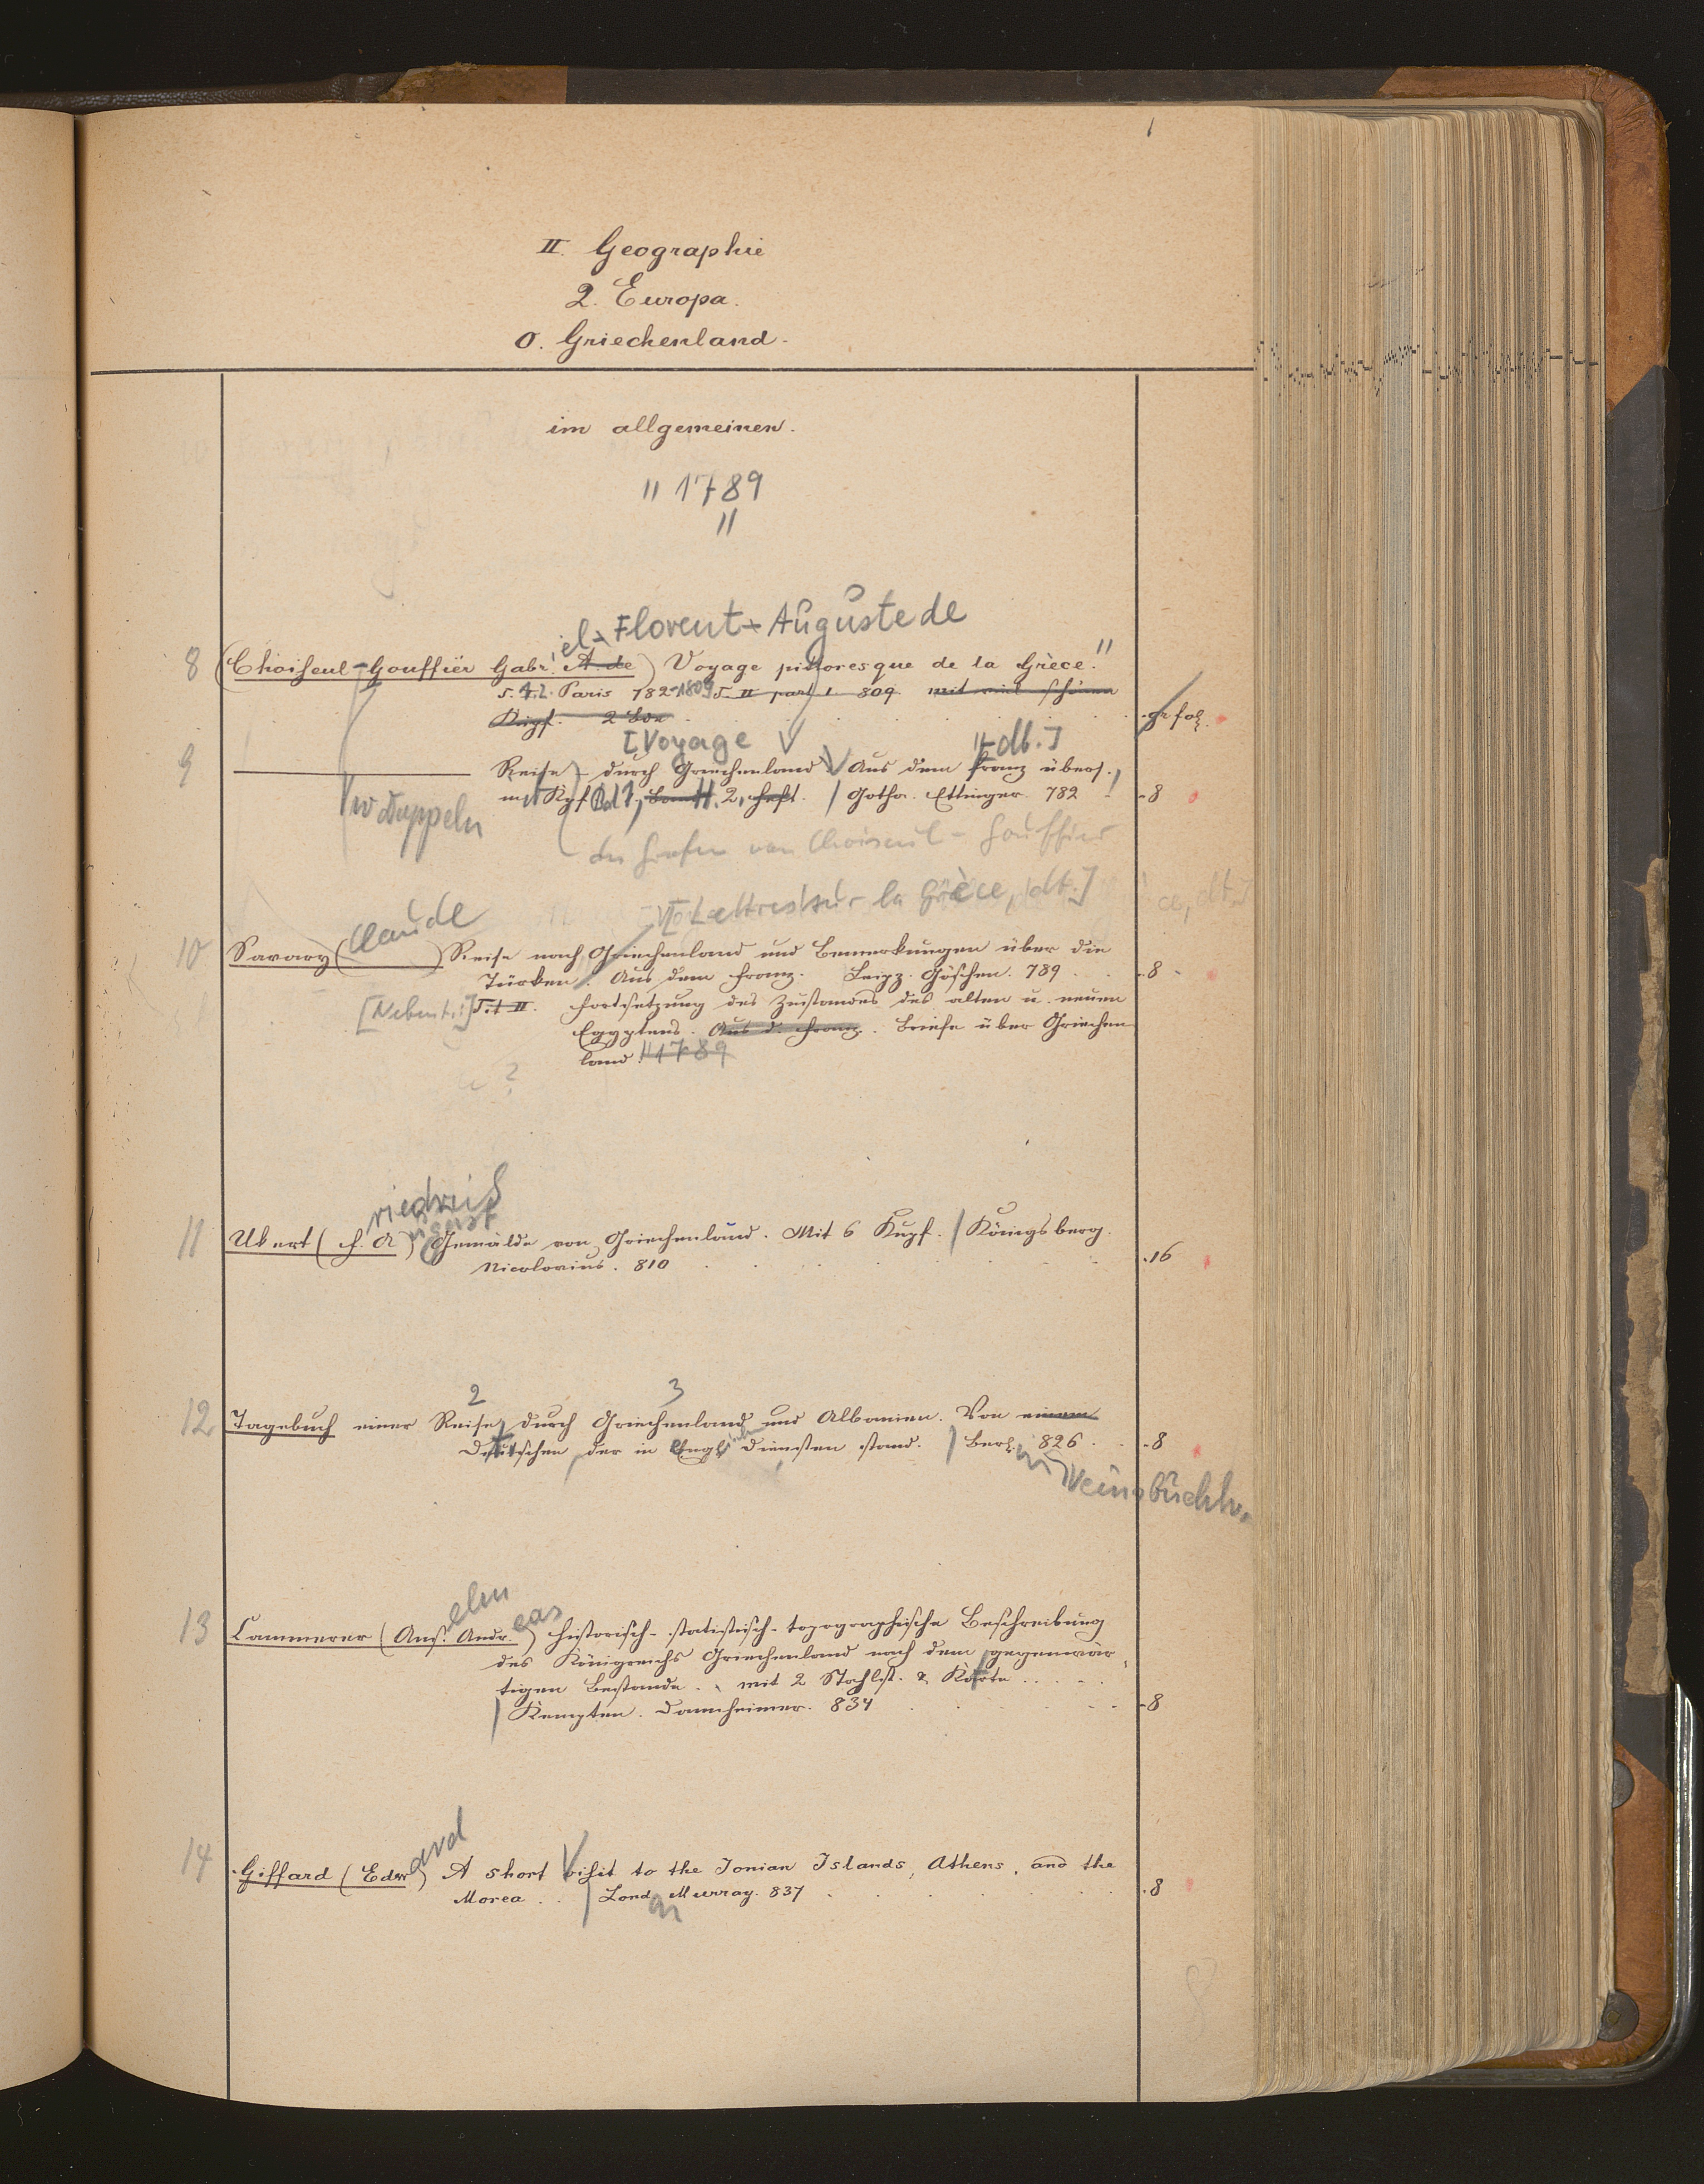 II. Geographie
2. Europa.
O. Griechenland.
im allgemeinen.
" 1789
"
el-Florent-Auguste de
8 (Choiseul-Gouffier Gabr. A. de) Voyage pittoresque de la Grèce."
T. 1.2. Paris 782-1809 T. II part 1 809 mit schönen
Kupf. 2 Bde gr fol.
[Voyage dt.]
9 Reise durch Griechenland Aus dem Franz übers.,
mit Kpf Bd 1, H. 2, Heft. / Gotha. Ettinger. 782 8
des Grafen von Choiseul-Gouffier
[Lettres sur la Grèce, dt.]
Claude
10 Savary ( ) Reise nach Griechenland und Bemerkungen über die
Türken. Aus dem Franz. Leipz. Göschen. 789 8
[Nebent.:] T. II. Fortsetzung des Zustandes des alten u. neuen
Egyptens. Aus d. Franz. Briefe über Griechen
land. 1789
riedrich
ugust
11 Ukert (F. A) Gemälde von Griechenland. Mit 6 Kupf. / Königsberg.
Nicolovius. 810 16
2 3
12 Tagebuch einer Reise durch Griechenland und Albanien. Von einem
Deutschen, der in Engl. Diensten stand. / Berl. 826 8
in Vereinsbuchh.
elm
eas
13 Cammerer (Ans. Andr.) historisch-statistisch-topographische Beschreibung
des Königreichs Griechenland nach dem gegenwär
tigen Bestande. mit 2 Stahlst. & Karte
/ Kempten. Dannheimer. 834 8
ard
14 Giffard (Edw) A short Visit to the Ionian Islands, Athens, and the
Morea / Lond. Murray. 837 8
on